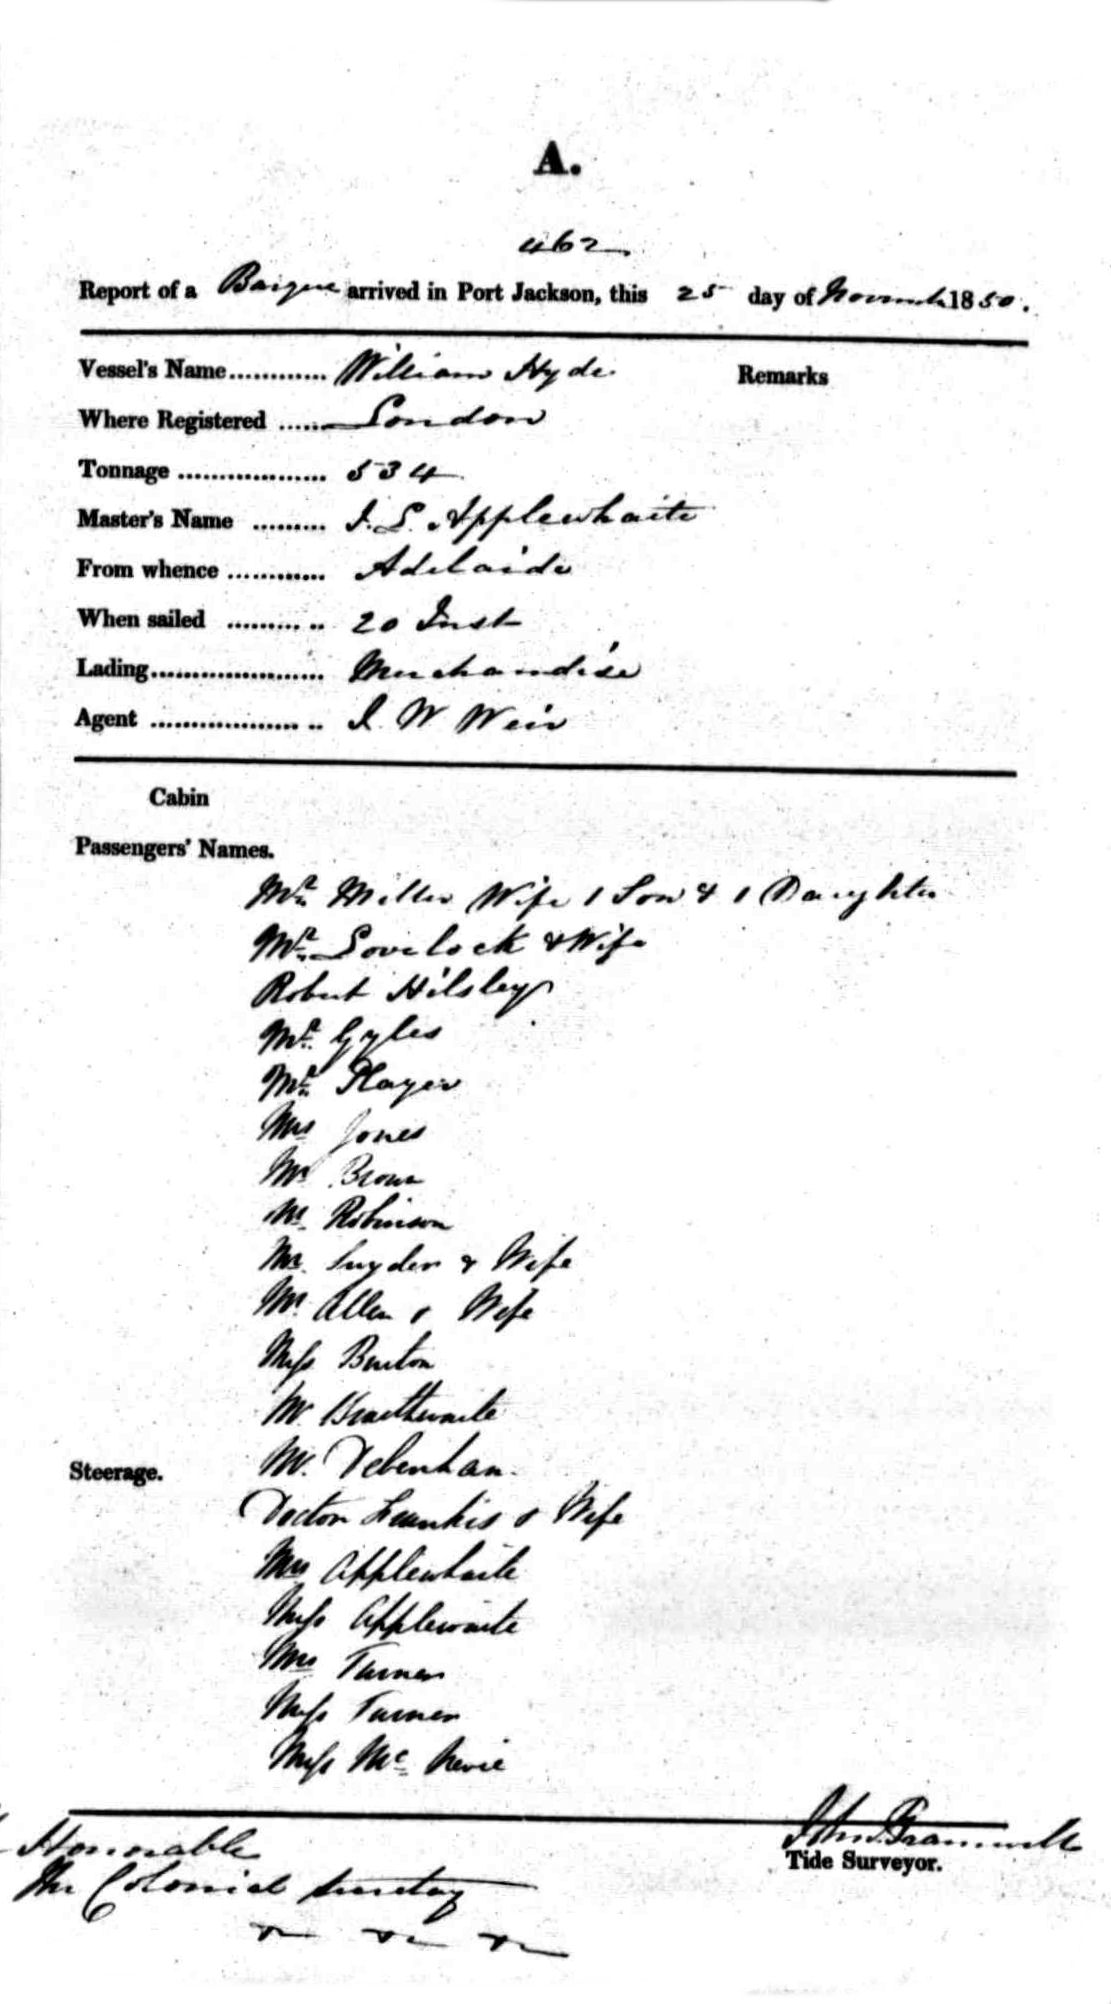 A.
462
Report of a Barque arrived in Port Jackson, this 25 day of Novembr 1850.
Vessel's Name............ William Hyde. Remarks
Where Registered ...... London
Tonnage .................. 534
Master's Name ......... J. S. Applewhaite
From whence ............ Adelaide
When sailed ......... .. 20 Inst
Lading..................... Merchandise
Agent .................. .. J. W Weir
Cabin
Passengers' Names.
Mr. Miller Wife 1 Son & 1 Daughter
Mr. Lovelock & Wife
Robert Hilsley
Mr. Gyles
Mr. Player
Mrs Jones
Mr Brown
Mr. Robinson
Mr. Snyder & Wife
Mr. Allen & Wife
Miss Burton
Mr. Braithwaite
Steerage. Mr. Debenham
Doctor & Wife
Mrs Applewhaite
Miss Applewaite
Mrs Turner
Miss Turner
Miss Mc
John Bramwell
Tide Surveyor.
Honorable
The Colonial Secretary